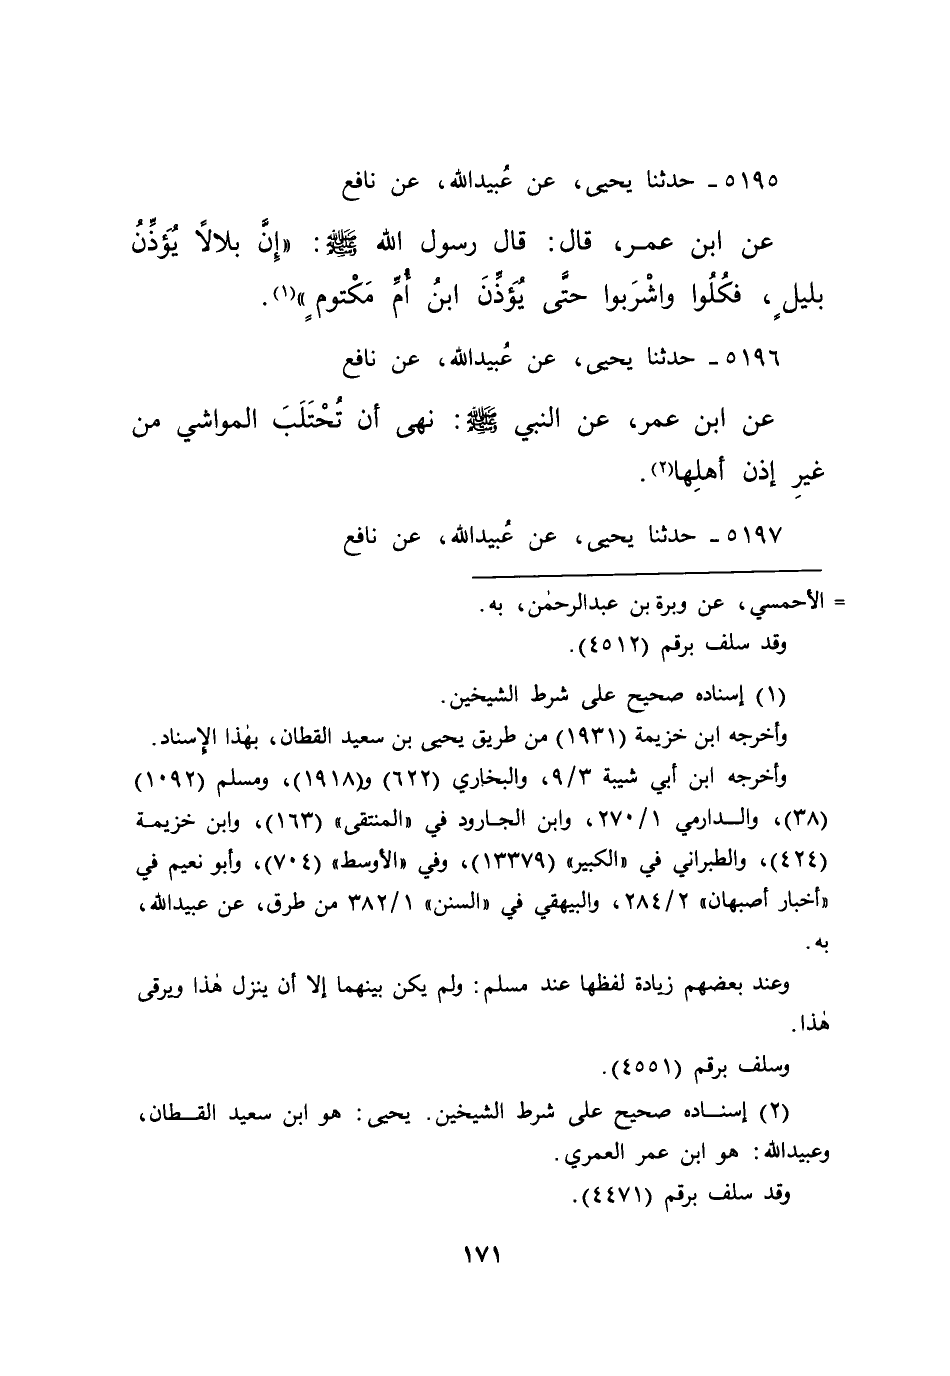 ٥١٩٥ ـ حدثنا يحيى، عن عُبيدالله، عن نافع
عن ابن عمر، قال: قال رسول الله ﷺ: «إِنَّ بلالاً يُؤَذِّنُ
بليلٍ، فكُلُوا واشْرَبوا حتَّى يُؤَذِّنَ ابنُ أُمِّ مَكْتومٍ»(١).
٥١٩٦ ـ حدثنا يحيى، عن عُبيدالله، عن نافع
عن ابن عمر، عن النبي ﷺ: نهى أن تُحْتَلَبَ المواشي من
غيرِ إذن أهلِها(٢).
٥١٩٧ ـ حدثنا يحيى، عن عُبيدالله، عن نافع
= الأحمسي، عن وبرة بن عبدالرحمٰن، به.
وقد سلف برقم (٤٥١٢).
(١) إسناده صحيح على شرط الشيخين.
وأخرجه ابن خزيمة (١٩٣١) من طريق يحيى بن سعيد القطان، بهٰذا الإسناد.
وأخرجه ابن أبي شيبة ٩/٣، والبخاري (٦٢٢) و(١٩١٨)، ومسلم (١٠٩٢)
(٣٨)، والدارمي ٢٧٠/١، وابن الجارود في «المنتقى» (١٦٣)، وابن خزيمة
(٤٢٤)، والطبراني في «الكبير» (١٣٣٧٩)، وفي «الأوسط» (٧٠٤)، وأبو نعيم في
«أخبار أصبهان» ٢٨٤/٢، والبيهقي في «السنن» ٣٨٢/١ من طرق، عن عبيدالله،
به.
وعند بعضهم زيادة لفظها عند مسلم: ولم يكن بينهما إلا أن ينزل هٰذا ويرقى
هٰذا.
وسلف برقم (٤٥٥١).
(٢) إسناده صحيح على شرط الشيخين. يحيى: هو ابن سعيد القطان،
وعبيدالله: هو ابن عمر العمري.
وقد سلف برقم (٤٤٧١).
١٧١